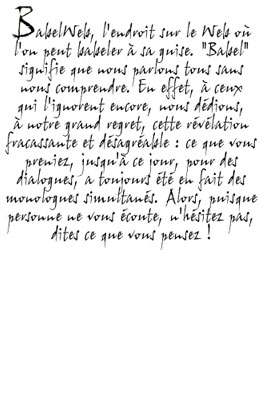 BabelWeb, l'endroit sur le Web où
l'on peut babeler à sa guise. "Babel"
signifie que nous parlons tous sans
nous comprendre. En effet, à ceux
qui l'ignorent encore, nous dédions,
à notre grand regret, cette révélation
fracassante et désagréable : ce que vous
preniez, jusqu'à ce jour, pour des
dialogues, a toujours été en fait des
monologues simultanés. Alors, puisque
personne ne vous éconte, n'hésitez pas,
dites ce que vous pensez !